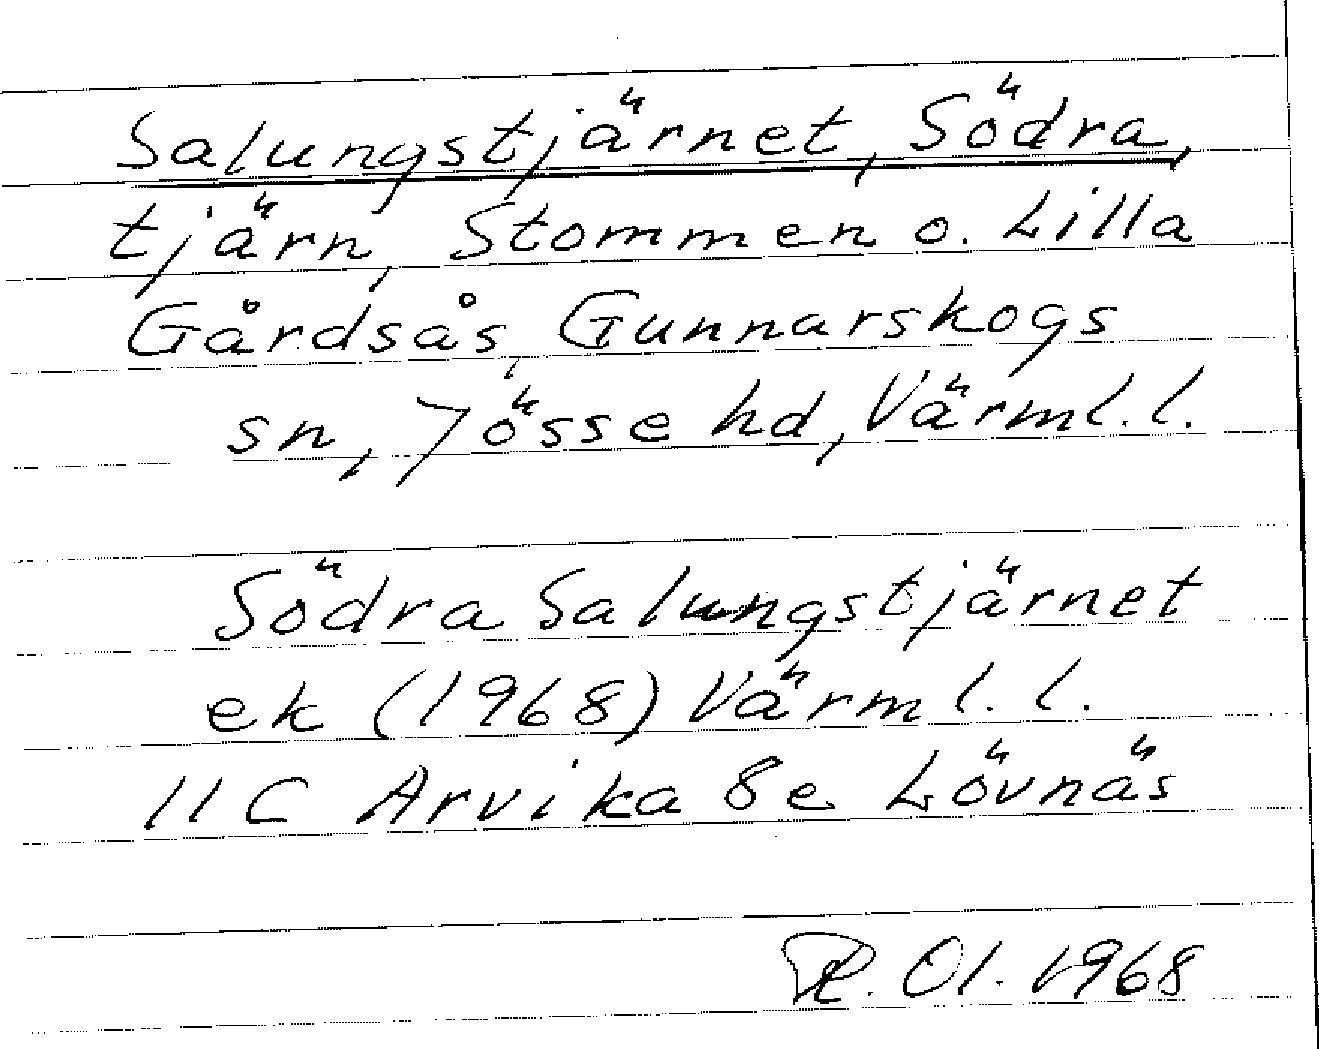 Salungstjärnet, Södra,
tjärn, Stommen o. Lilla
Gårdsås, Gunnarskogs
sn, Jösse hd, Värml. l.
Södra Salungstjärnet
ek (1968) Värml. l.
11 C Arvika 8e Lövnäs
Ol. 1968